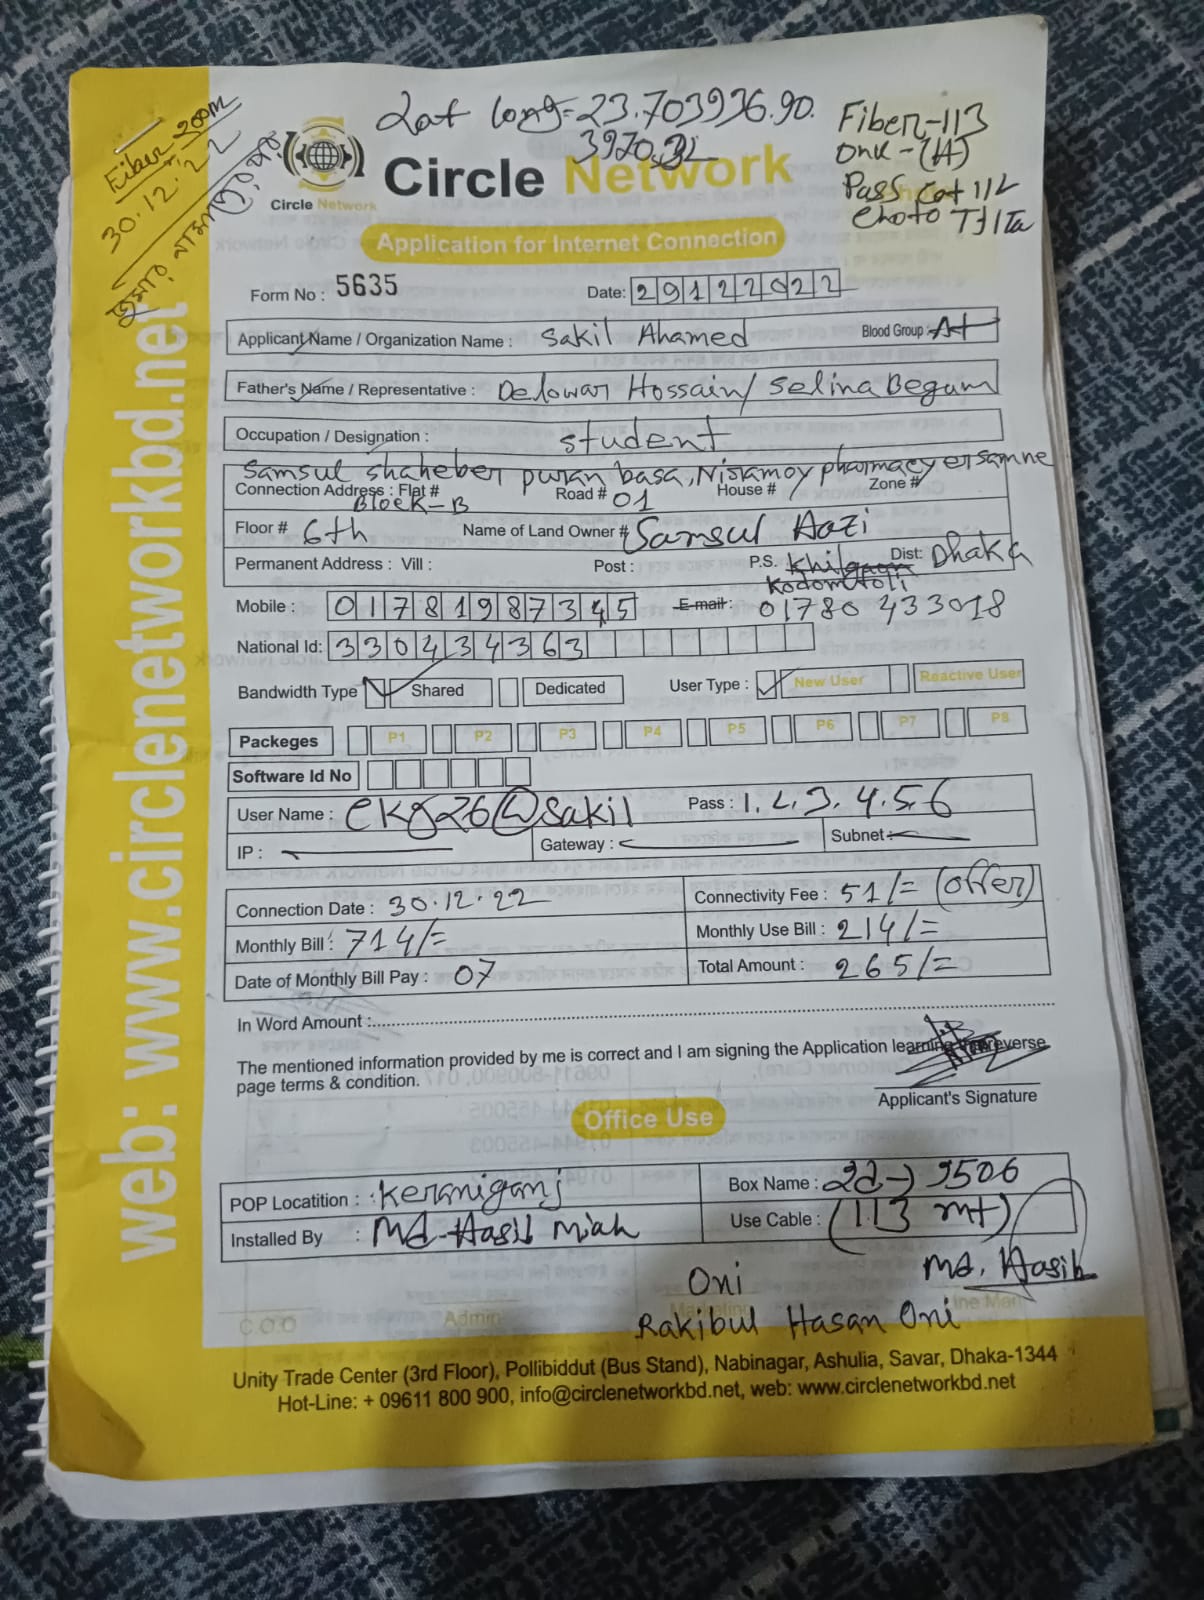 Lat long=23.703936.90.
3970.32
Fiber-113
Onu-(A)
Pass Cat 1/2
Choto
Fiber 200m
30.12.22
Circle Network
Circle Network
Application for Internet Connection
Form No : 5635
Date: 29122022
Applicant Name / Organization Name : Sakil Ahamed Blood Group : A+
Father's Name / Representative : Delowar Hossain/ Selina Begum
Occupation / Designation : student
Samsul shaheber puran basa, Nisamoy pharmacy er samne
Connection Address : Flat # Block-B Road # 01 House # Zone #
Floor # 6th Name of Land Owner # Samsul Hazi
Permanent Address : Vill : Post : P.S. Khilgaon Dist: Dhaka
Kodomtoli
Mobile : 01781987345 E-mail: 01780 433018
National Id: 3304234363
Bandwidth Type Shared Dedicated User Type : New User Reactive User
Packeges P1 P2 P3 P4 P5 P6 P7 P8
Software Id No
User Name : ekg26@sakil Pass : 1.2.3.4.5.6
IP : Gateway : Subnet
Connection Date : 30.12.22 Connectivity Fee : 51/= (offer)
Monthly Bill : 714/= Monthly Use Bill : 214/=
Date of Monthly Bill Pay : 07 Total Amount : 265/=
In Word Amount :
The mentioned information provided by me is correct and I am signing the Application learning the reverse
page terms & condition.
Applicant's Signature
Office Use
POP Locatition : Keraniganj Box Name : 2d-> 9506
Installed By : Md-Hasib Miah Use Cable : (113 mt)
Oni Md. Hasib
Rakibul Hasan Oni
C.O.O Admin Marketing Line Man
Unity Trade Center (3rd Floor), Pollibiddut (Bus Stand), Nabinagar, Ashulia, Savar, Dhaka-1344
Hot-Line: + 09611 800 900, info@circlenetworkbd.net, web: www.circlenetworkbd.net
web: www.circlenetworkbd.net